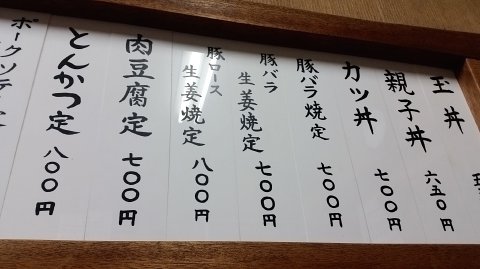 玉丼 六五〇円
親子丼 七〇〇円
カツ丼 七〇〇円
豚バラ焼定 七〇〇円
豚バラ
生姜焼定 七〇〇円
豚ロース
生姜焼定 八〇〇円
肉豆腐定 七〇〇円
とんかつ定 八〇〇円
ポークソテー定